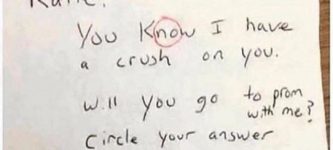 You Know I have
a crush on you.
Will you go to prom
with me?
Circle your answer